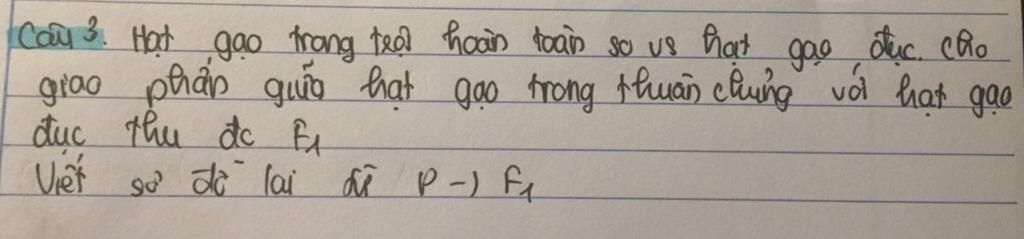 Câu 3. Hạt gạo trong trội hoàn toàn so vs hạt gạo đục. Cho
giao phấn giữa hạt gạo trong thuần chủng với hạt gạo
đục thu đc F1
Viết sơ đồ lai từ P -> F1